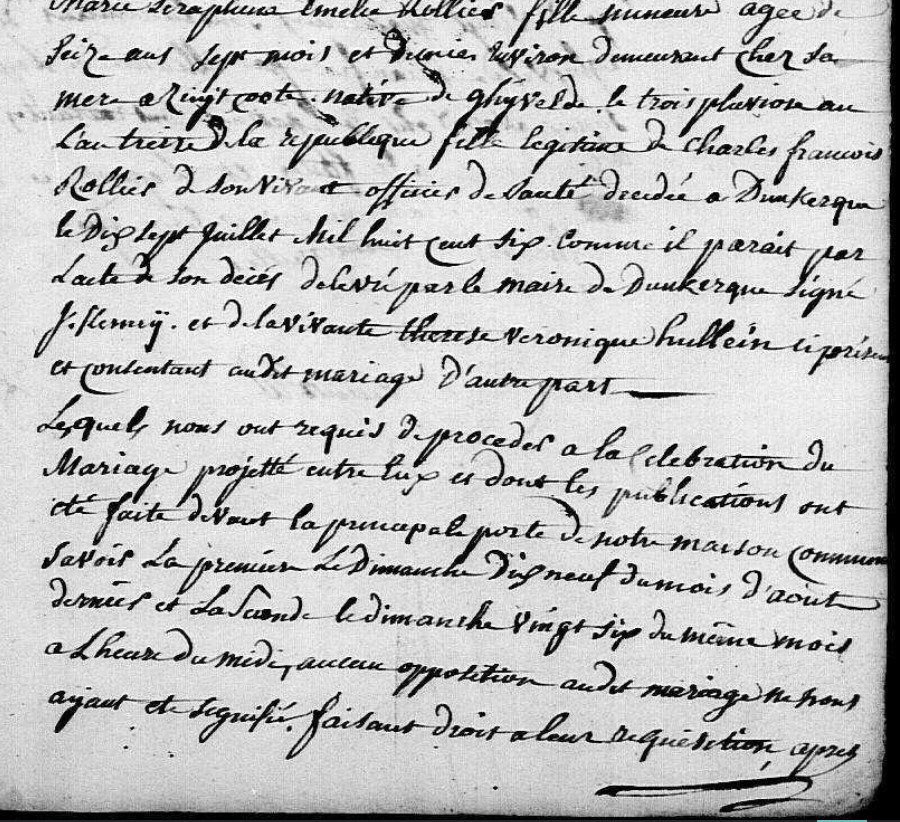 Marie Seraphine Emelie Rollier fille mineure agée de
Seize ans sept mois et demie environ demeurant chez sa
mere a Zuydcoote native de ghyvelde le trois pluviose an
L'an treize de la republique fille legitime de Charles francois
Rollier de Son vivant officier de Santé decedée a Dunkerque
le Dix Sept Juillet Mil huit Cent Six Comme il parait par
L'acte de Son deces delevré par le maire de Dunkerque Signé
J. Kenny. et de la vivante therese veronique hullein ci présente
et Consentant audit mariage D'autre part
Lesquels nous ont requis de proceder a la Celebration du
Mariage projetté entre Eux et dont les publications ont
eté faite devant la principale porte de notre maison Commune
Savoir La premiere Le Dimanche Dix neuf du mois d'aout
dernier et La Seconde le dimanche vingt Six du même mois
a L'heure du midi, aucun opposition audit mariage ne nous
ayant eté Signifié. faisant droit a leur requisition, apres